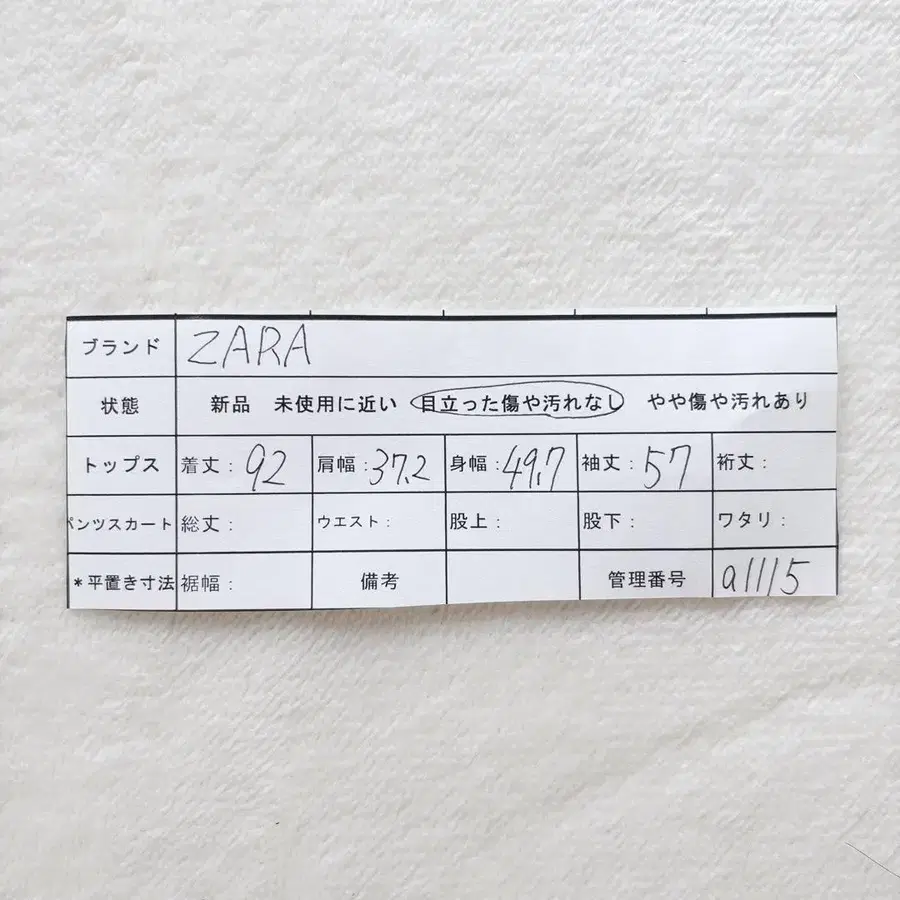 ブランド ZARA
状態 新品 未使用に近い 目立った傷や汚れなし やや傷や汚れあり
トップス 着丈: 92 肩幅: 37.2 身幅: 49.7 袖丈: 57 裄丈:
パンツスカート 総丈: ウエスト: 股上: 股下: ワタリ:
*平置き寸法 裾幅: 備考 管理番号 a1115